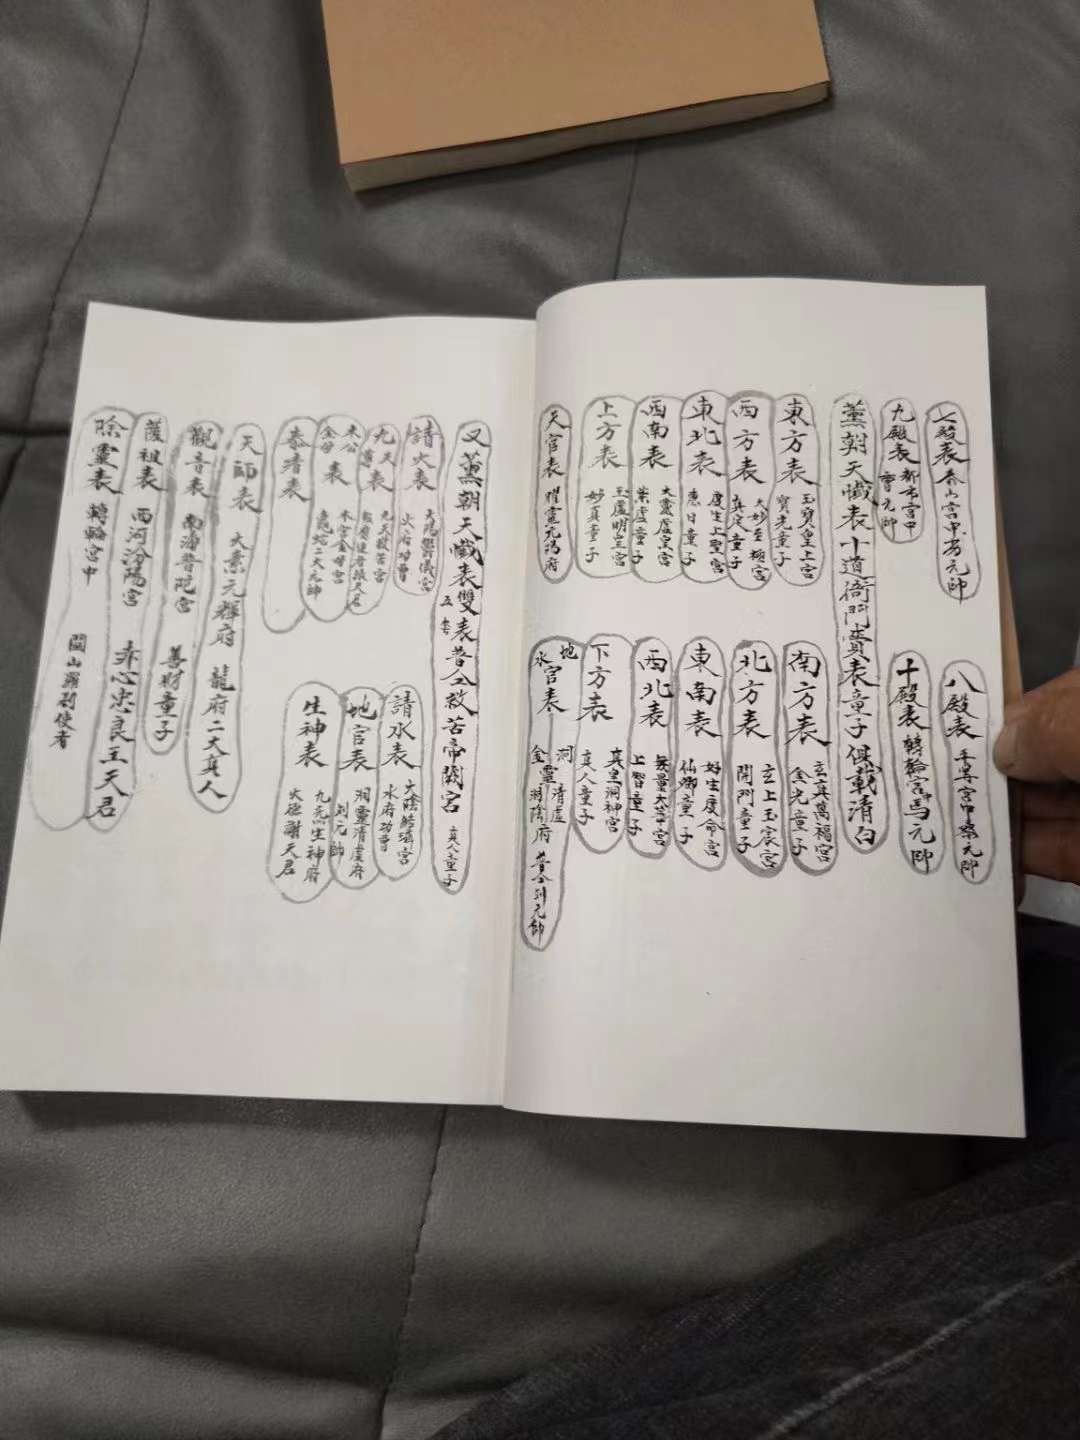 七殿表 泰山宮中 元帥
八殿表 平等宮中 元帥
九殿表 都市宮中 曹元帥
十殿表 轉輪宮中馬元帥
薰朝天懺表十道衙門賚表童子俱載清白
東方表 玉寶皇上宮 寶光童子
南方表 玄真萬福宮 金光童子
西方表 太妙至極宮 真定童子
北方表 玄上玉宸宮 開門童子
東北表 度生上聖宮 惠日童子
東南表 好生度命宮 仙卿童子
西南表 太靈虛皇宮 紫虛童子
西北表 無量太華宮 上智童子
上方表 玉虛明皇宮 妙真童子
下方表 真皇洞神宮 真人童子
天官表 曜靈元陽府
地水官表 洞靈清虛 金靈洞陽府 普今刘元帥
又薰朝天懺表雙表普仝救苦帝闕宮 真人童子
五書
請火表 太陽鬱儀宮 火府功曹
請水表 太陰結璘宮 水府功曹
九天表 九天
地官表 洞靈清虛府 刘元帥
木公金母表 木宮金母宮 龜蛇二大元帥
生神表 九炁生神府 大德謝天君
泰清表
天師表 太素元輝府 龍府二大真人
觀音表 南海普陀宮 善財童子
護祖表 西河汾陽宮 赤心忠良王天君
除靈表 轉輪宮中 閭山羅刹使者